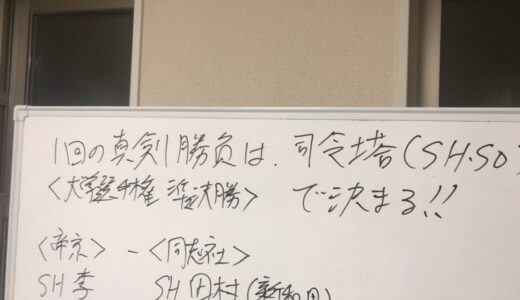 1回の真剣勝負は、司令塔(SH.SO)
<大学選手権 準決勝> で決まる!!
<帝京> - <同志社>
SH 李 SH 田村(新和田)